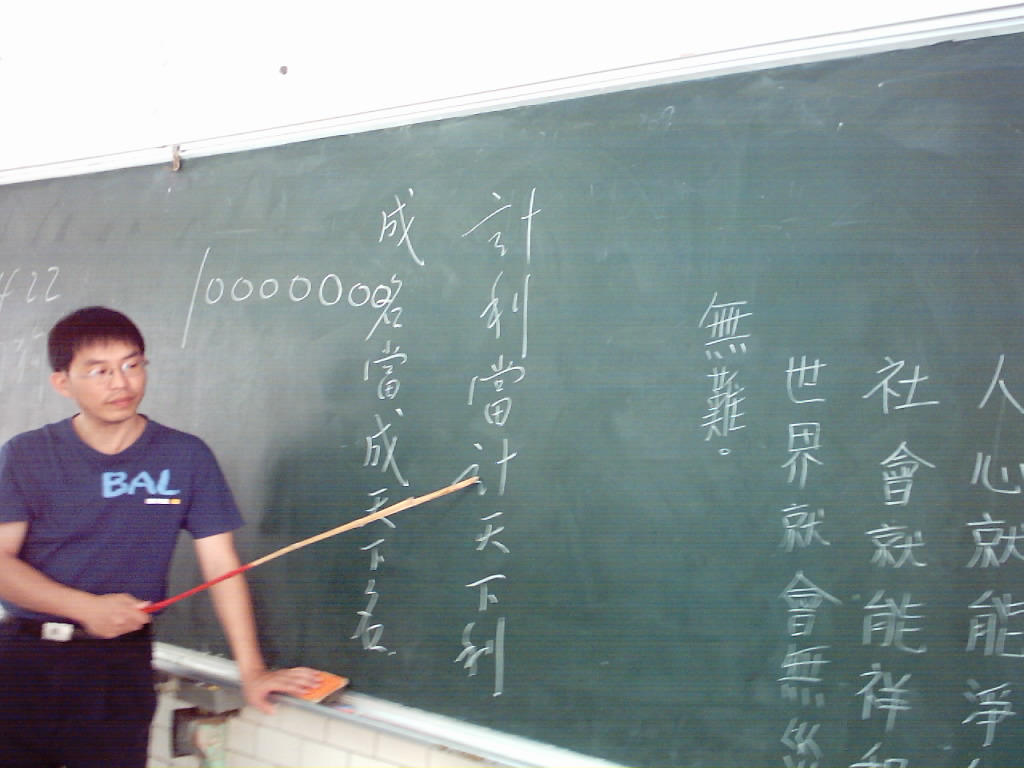 人心就能淨
社會就能祥和
世界就會無災
無難。
計利當計天下利
成名當成天下名
10000000
422
BAL